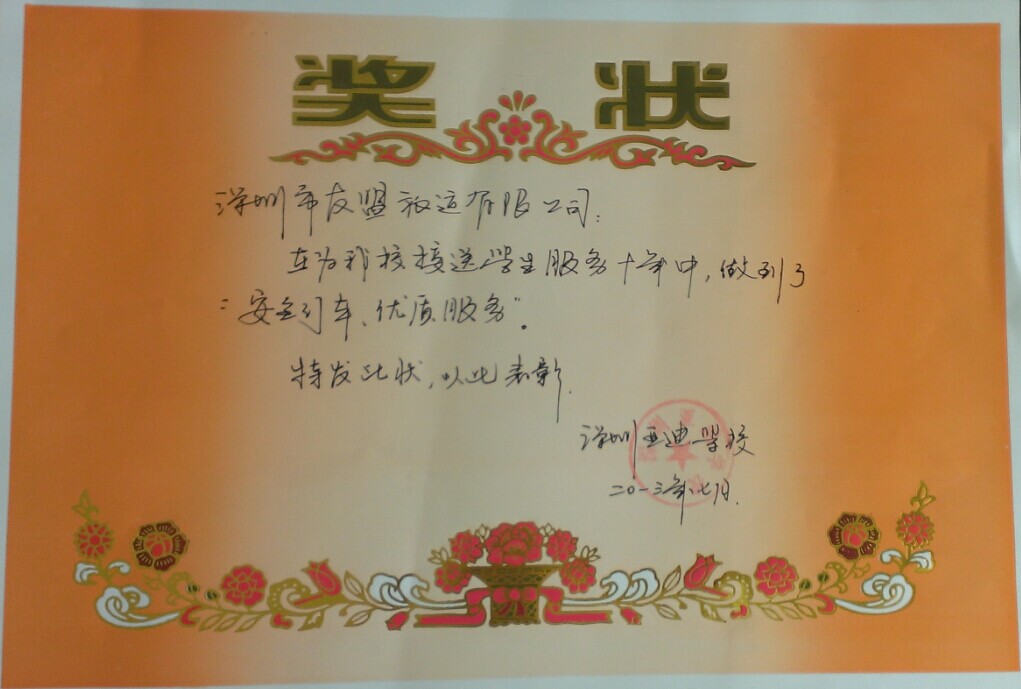 奖状
深圳市友盟旅运有限公司:
在为我校接送学生服务十年中,做到了
"安全行车、优质服务"。
特发此状,以此表彰.
深圳亚迪学校
二〇一三年七月.